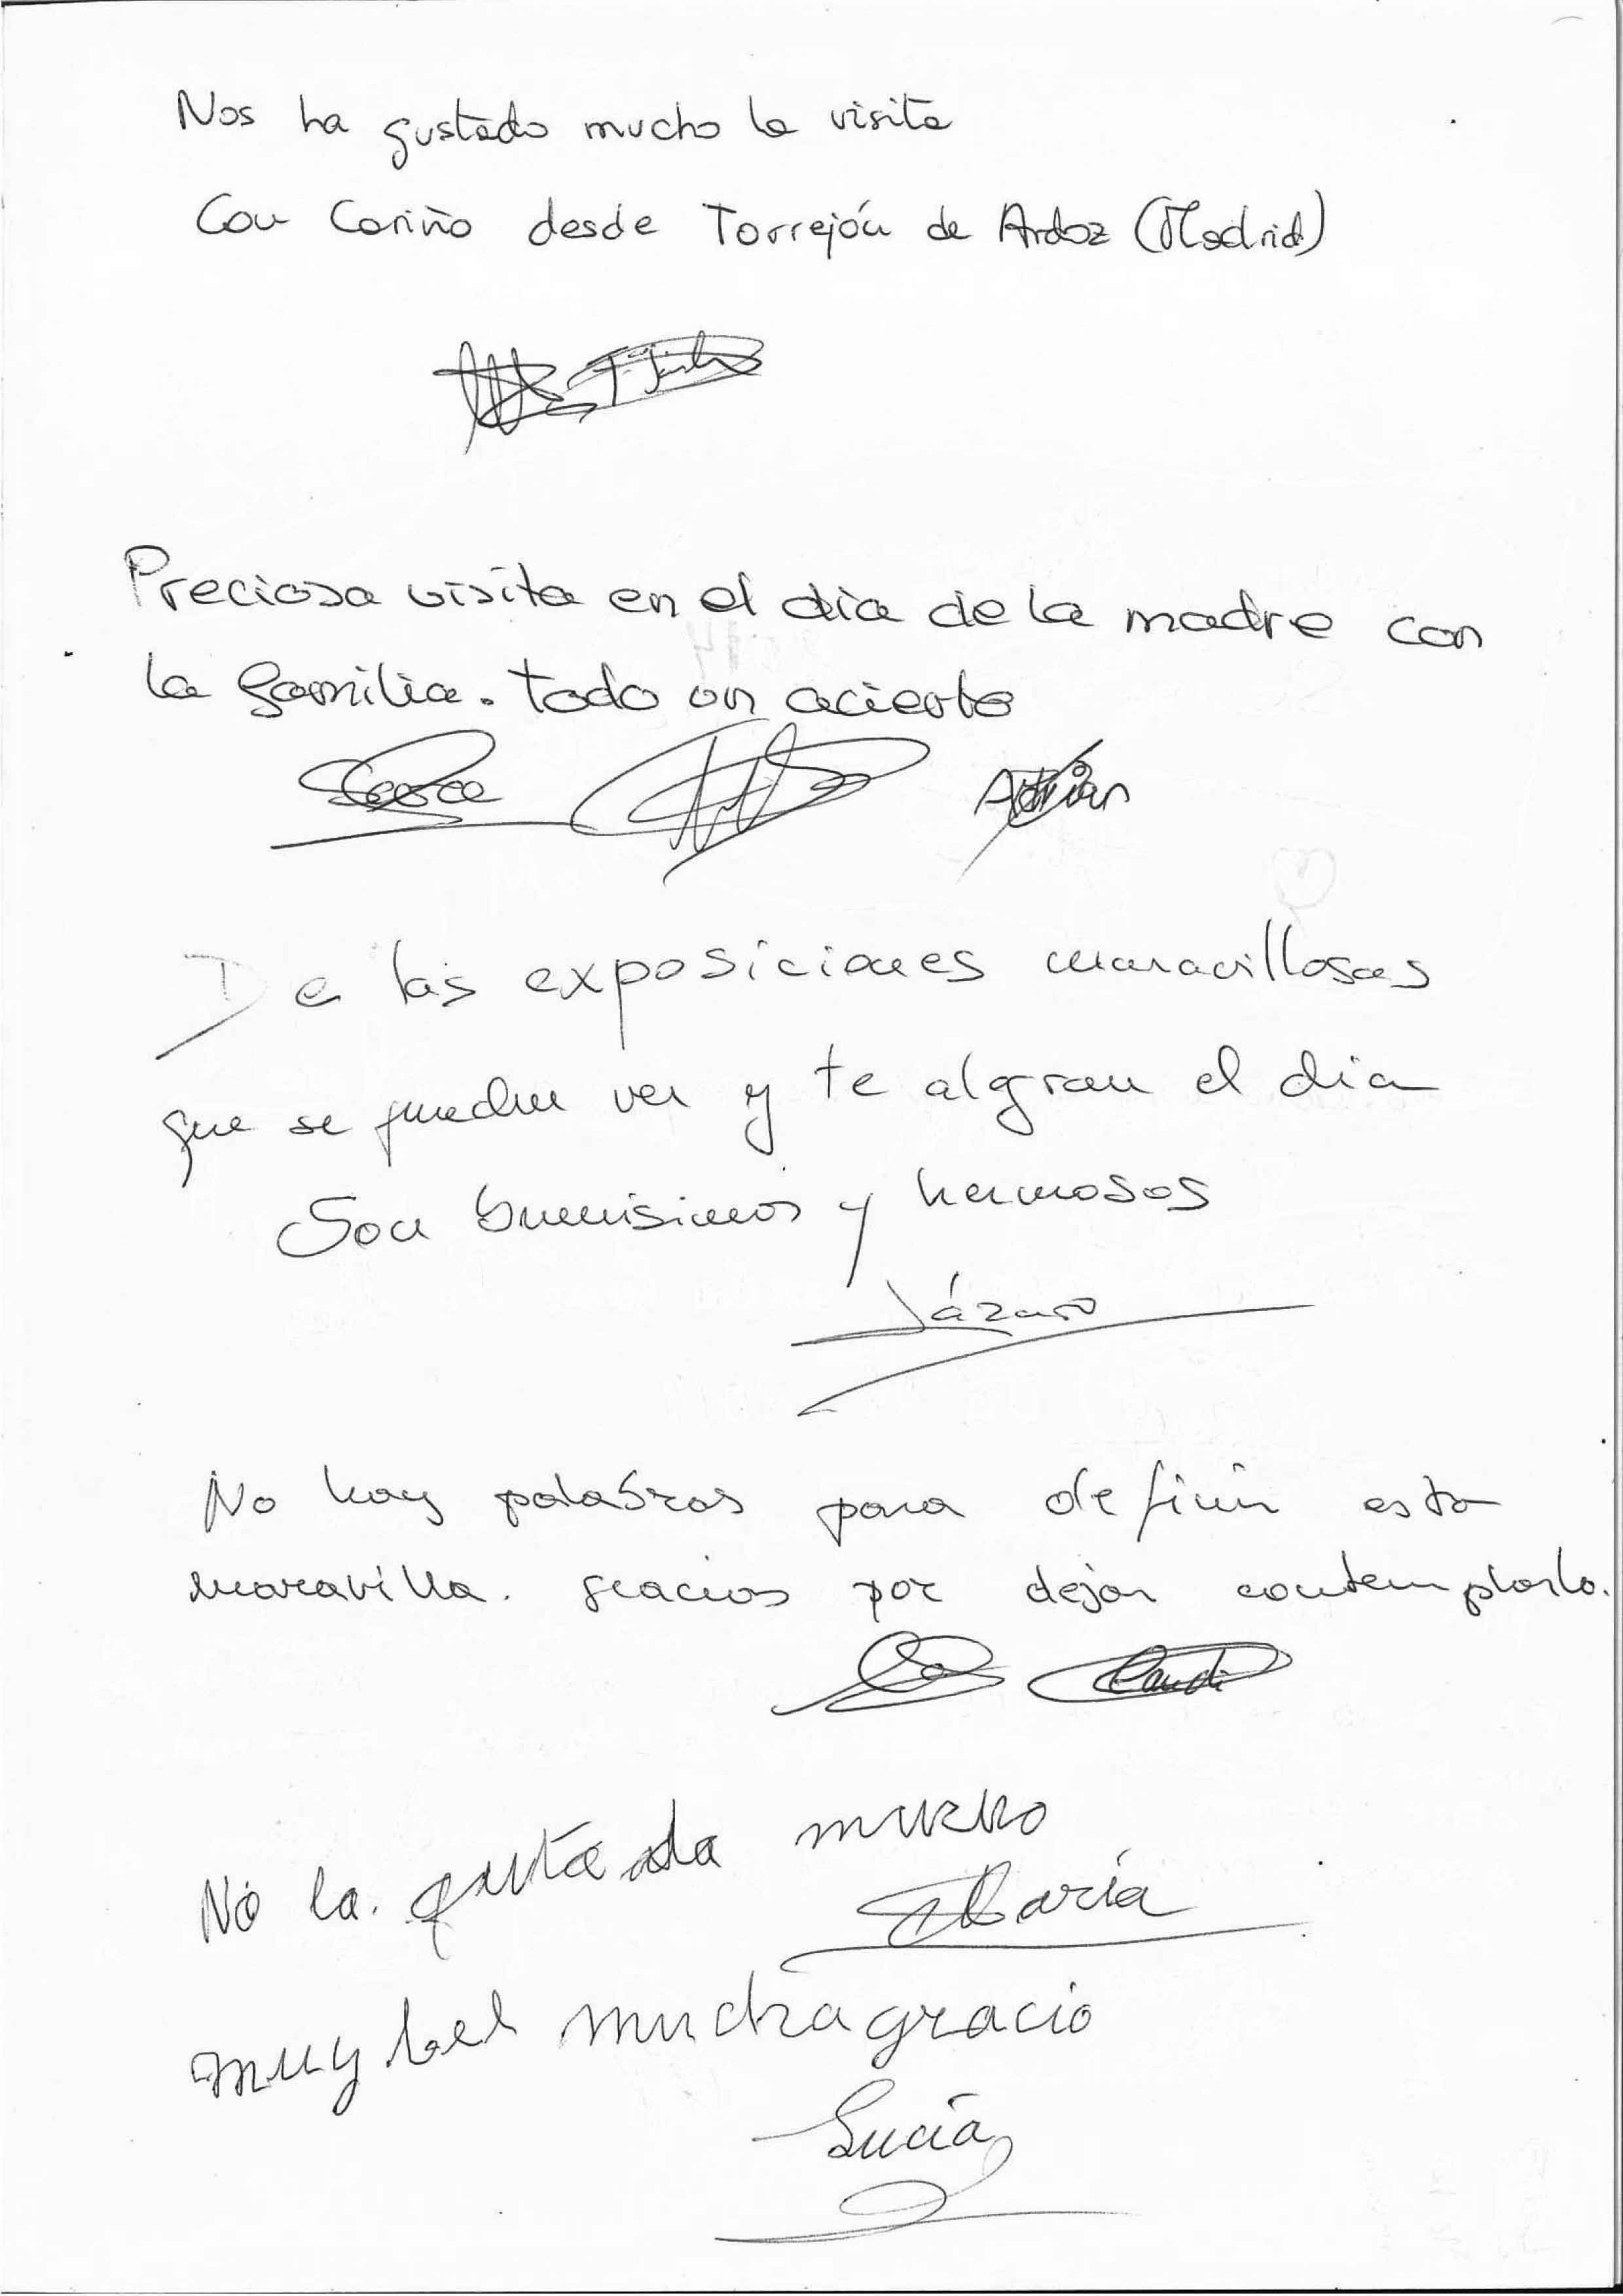 Nos ha gustado mucho la visita
Con Cariño desde Torrejón de Ardoz (Madrid)
Preciosa visita en el dia de la madre con
la familia. todo un acierto
Adrián
De las exposiciones maravillosas
que se pueden ver y te algran el dia
Son buenisimos y hermosos
Lázaro
No hay palabras para definir esta
maravilla. gracias por dejar contemplarlo.
No la mucho
María
muy bel muchagracio
Lucía